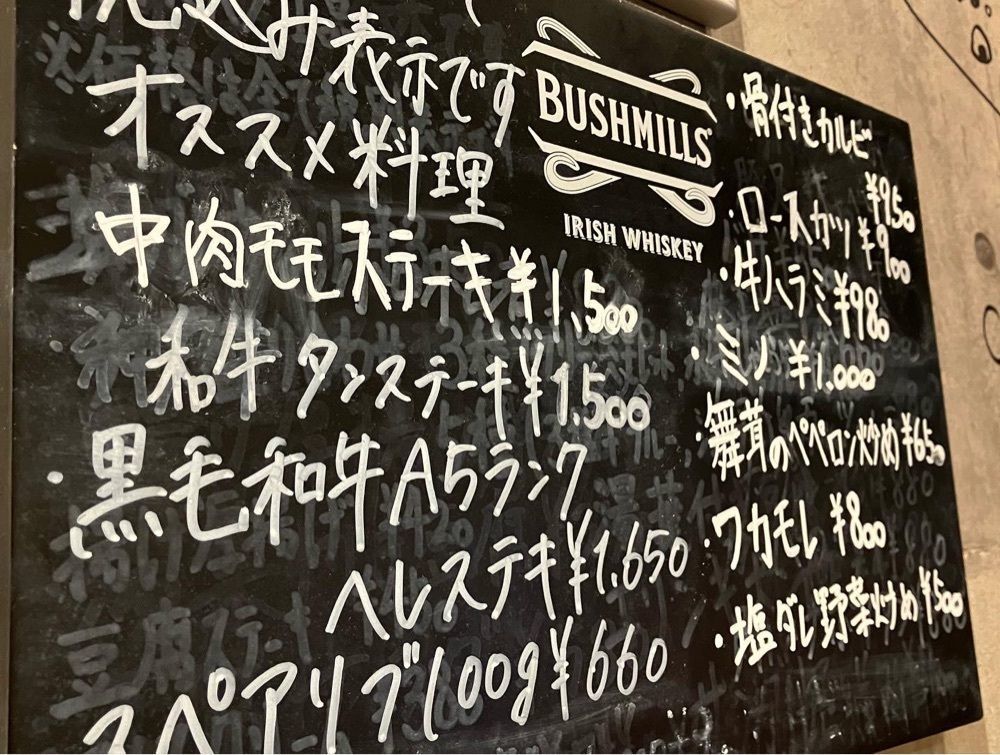 込み表示です
オススメ料理
中肉モモステーキ ¥1,500
和牛タンステーキ ¥1,500
・黒毛和牛A5ランク
ヘレステキ ¥1,650
スペアリブ100g ¥660
BUSHMILLS
IRISH WHISKEY
・骨付きカルビ
¥950
・ロースカツ ¥900
・牛ハラミ ¥980
・ミノ ¥1,000
・舞茸のペペロン炒め ¥650
・ワカモレ ¥800
・塩ダレ野菜炒め ¥500